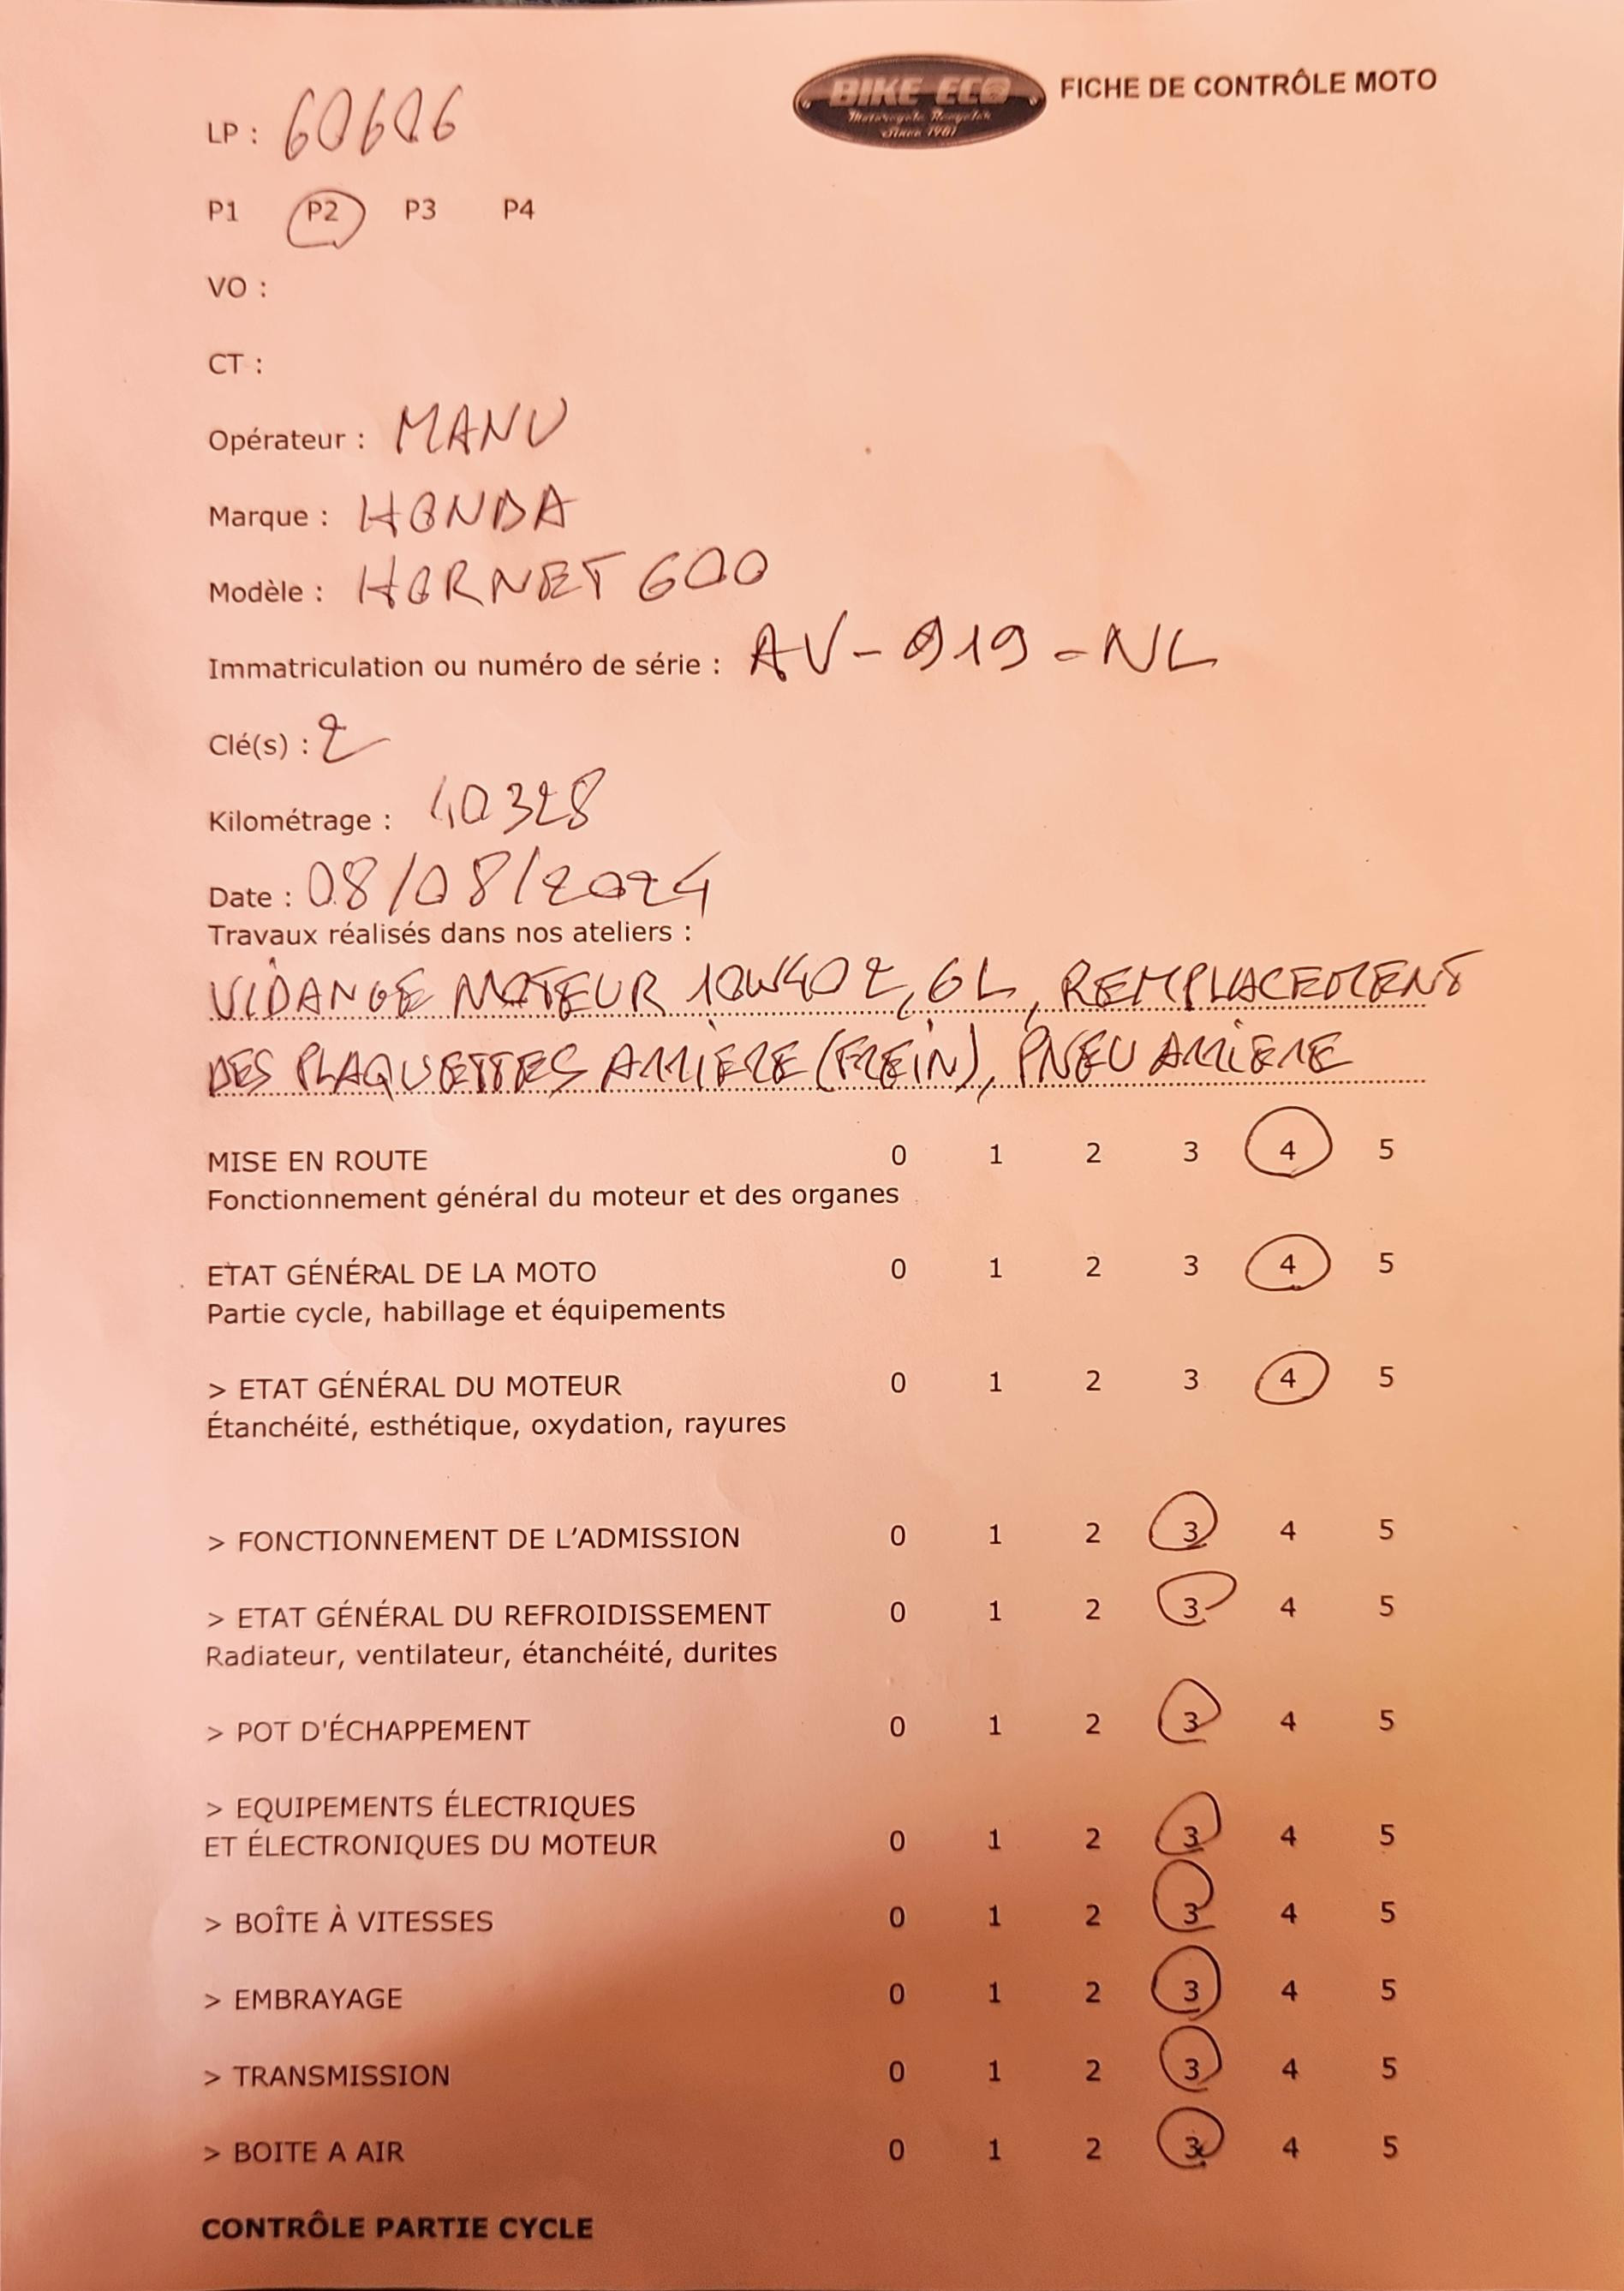 BIKE ECO
Motorcycle Recycler
Since 1981
FICHE DE CONTRÔLE MOTO
LP : 60606
P1 P2 P3 P4
VO :
CT :
Opérateur : MANU
Marque : HONDA
Modèle : HORNET 600
Immatriculation ou numéro de série : AV-919-NL
Clé(s) : 2
Kilométrage : 40328
Date : 08/08/2024
Travaux réalisés dans nos ateliers :
VIDANGE MOTEUR 10W40 2,6L, REMPLACEMENT
DES PLAQUETTES ARRIÈRE (FREIN), PNEU ARRIERE
MISE EN ROUTE 0 1 2 3 4 5
Fonctionnement général du moteur et des organes
ETAT GÉNÉRAL DE LA MOTO 0 1 2 3 4 5
Partie cycle, habillage et équipements
> ETAT GÉNÉRAL DU MOTEUR 0 1 2 3 4 5
Étanchéité, esthétique, oxydation, rayures
> FONCTIONNEMENT DE L'ADMISSION 0 1 2 3 4 5
> ETAT GÉNÉRAL DU REFROIDISSEMENT 0 1 2 3 4 5
Radiateur, ventilateur, étanchéité, durites
> POT D'ÉCHAPPEMENT 0 1 2 3 4 5
> EQUIPEMENTS ÉLECTRIQUES
ET ÉLECTRONIQUES DU MOTEUR 0 1 2 3 4 5
> BOÎTE À VITESSES 0 1 2 3 4 5
> EMBRAYAGE 0 1 2 3 4 5
> TRANSMISSION 0 1 2 3 4 5
> BOITE A AIR 0 1 2 3 4 5
CONTRÔLE PARTIE CYCLE